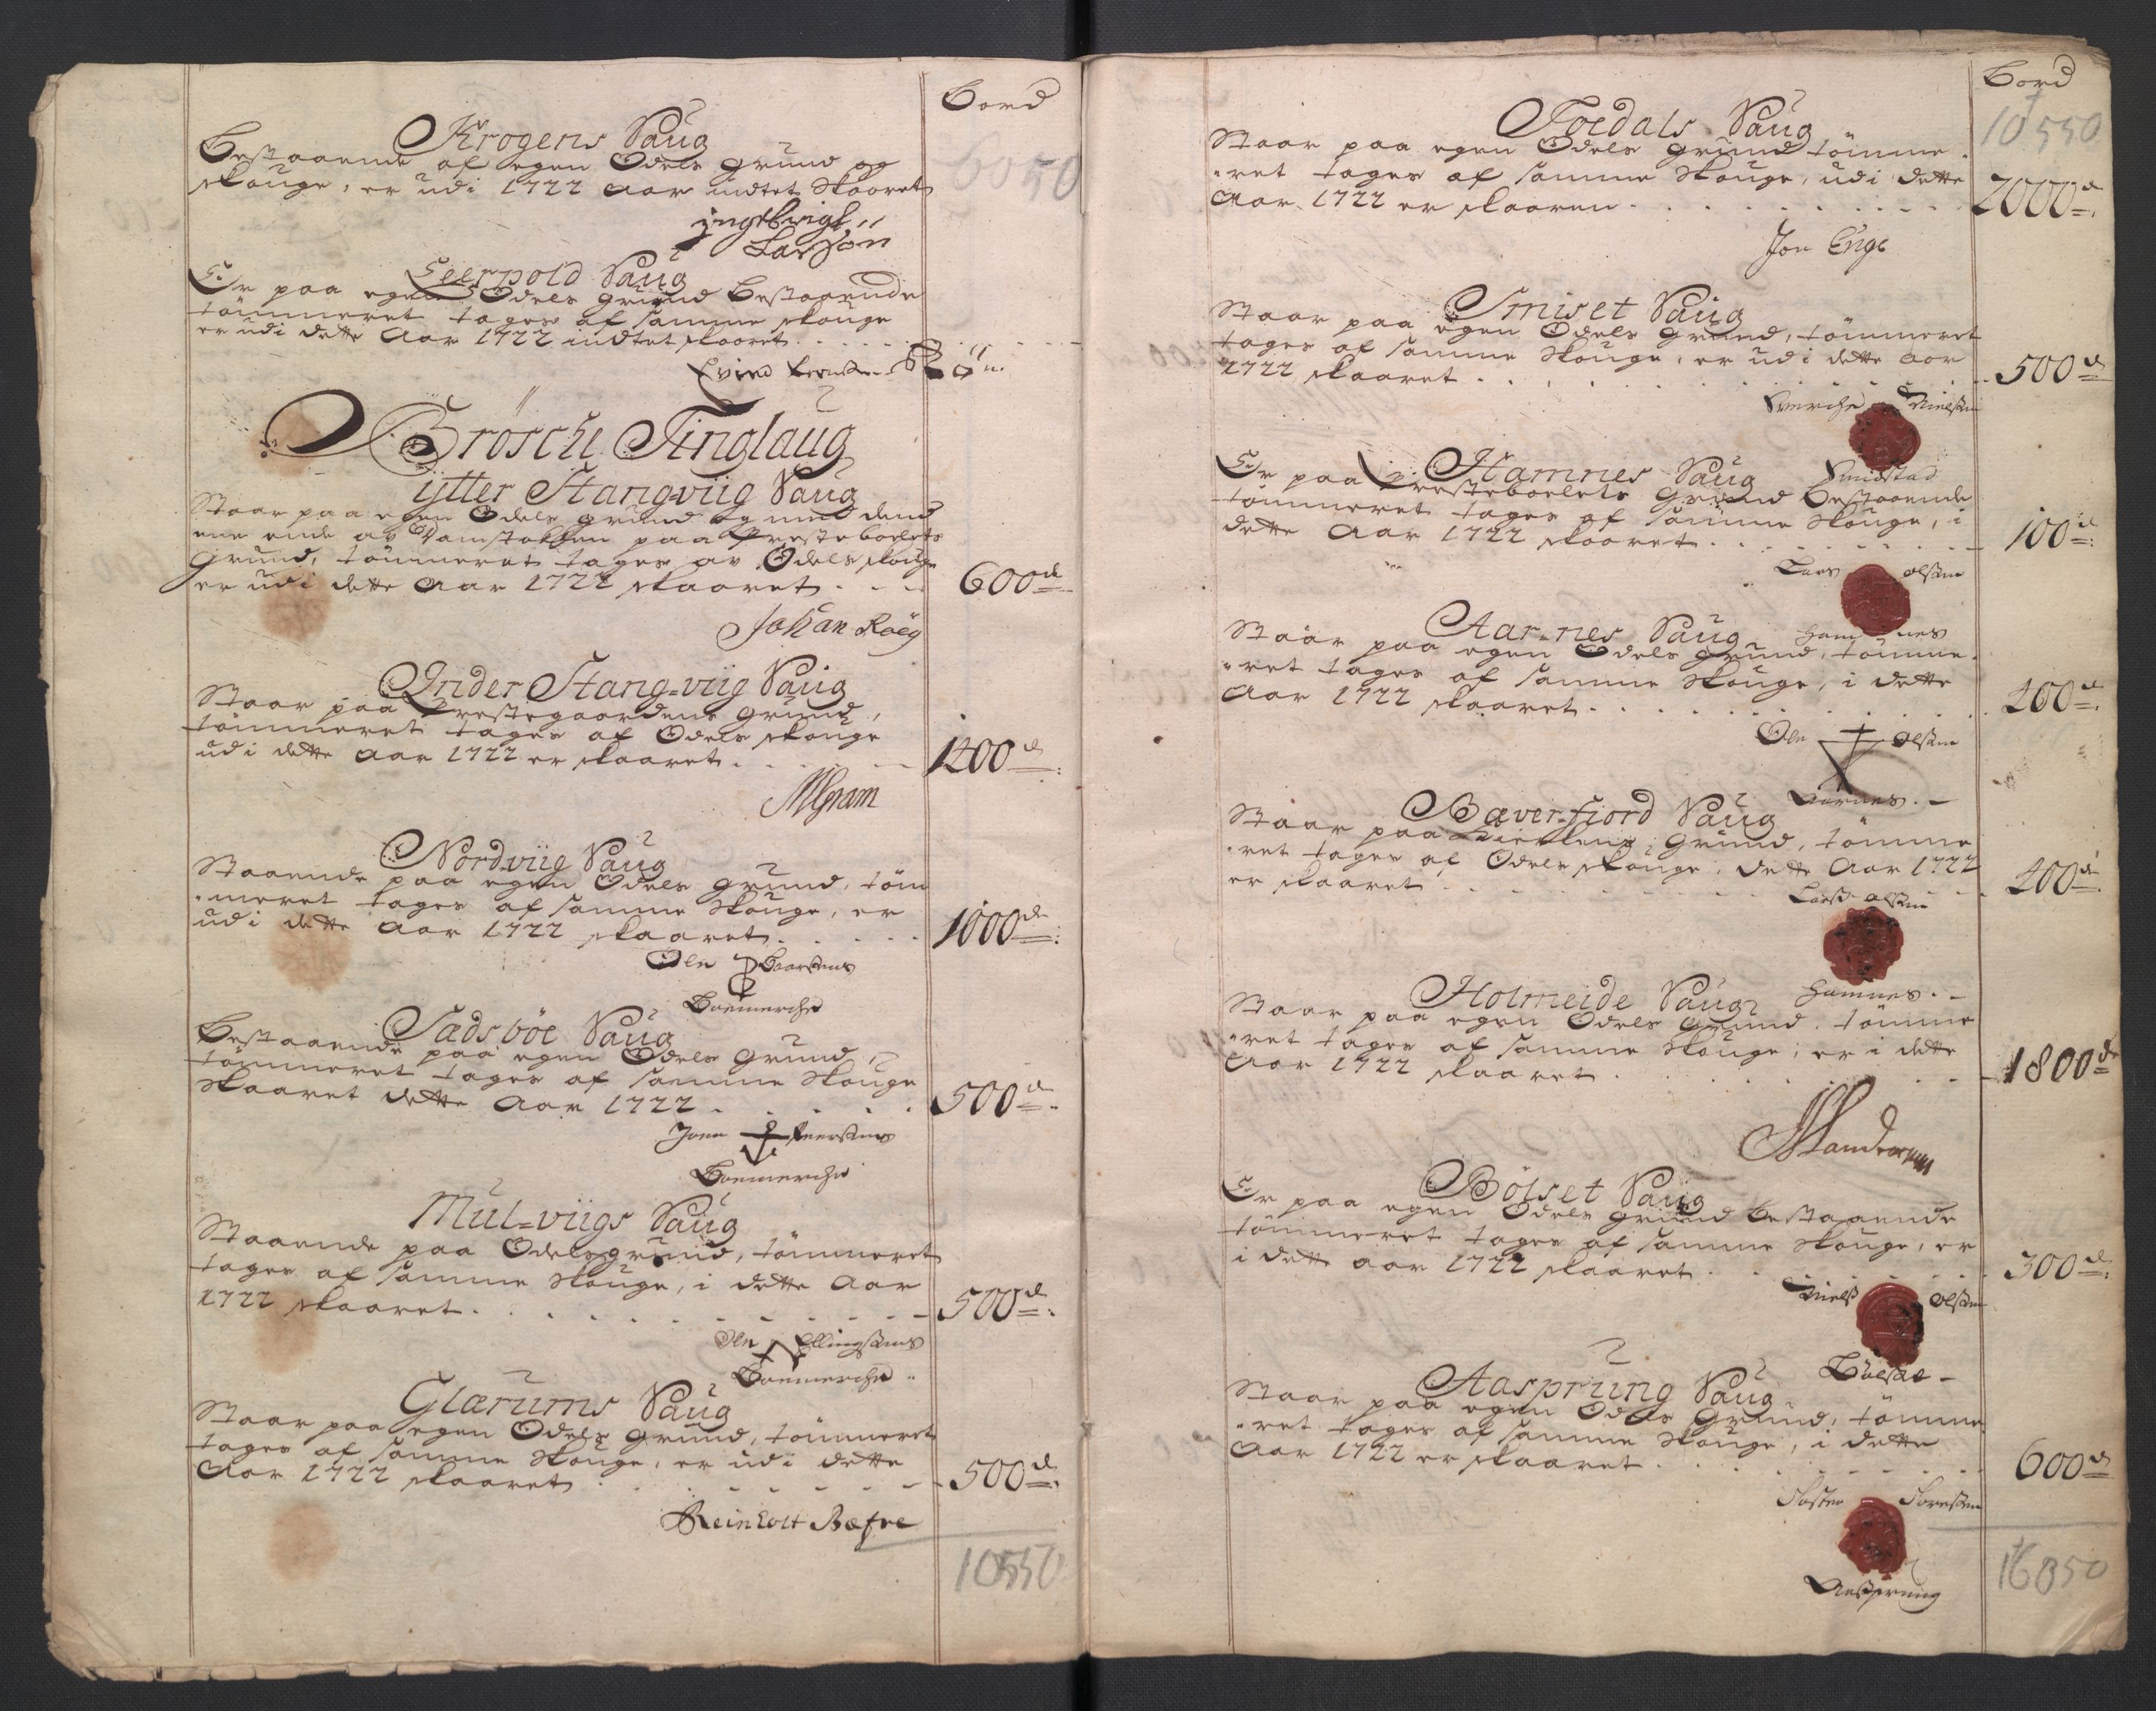 Bord
Krogens Saug
Bestaaende af egen Odels grund og
skouge, er udi 1722 Aar indtet Skaaret
6050
Larsøn
Leerpold Saug
Er paa egen Odels grund Bestaaende
tømmeret tages af samme skouge
er udi dette Aar 1722 indtet skaaret
Evind
Grøsche Tinglaug
ytter Stang-viig Saug
Staar paa egen Odels grund og med dend
ene ende av Damstokken paa Presteboelets
Grund, tømmeret tages av Odels skouge
er udi dette Aar 1722 skaaret 600 d
Johan Røeg
Inder Stang-viig Saug
Staar paa Prestegaardens grund,
tømmeret tages af Odels skouge
udi dette Aar 1722 er skaaret 1200 d
Nordviig Saug
Staaende paa egen Odels grund, tøm
meret tages af samme Skouge, er
udi dette Aar 1722 skaaret 1000 d
Ole Baarsens
Boemerche
Sadsbøe Saug
Bestaaende paa egen Odels Grund,
tømmeret tages af samme Skouge
Skaaret dette Aar 1722 500 d
Joen Peersens
Boemerche
Mul-viigs Saug
Staaende paa Odelsgrund, tømmeret
tages af samme Skouge, i dette Aar
1722 skaaret 500 d
Ole Ellingsens
Boemerche
Glærums Saug
Staar paa egen Odels Grund, tømmeret
tages af samme Skouge, er udi dette
Aar 1722 skaaret 500 d
Reinholt Bæfre
10550
Bord
10550
Foedals Saug
Staar paa egen Odels Grund tømme
ret tages af samme Skouge, udi dette
Aar 1722 er skaaren 2000 d
Jon Enge
Smiset Saug
Staar paa egen Odels Grund, tømmeret
tages af samme Skouge, er udi dette Aar
1722 skaaret 500 d
Sverche Nielsen
Hamnes Saug
Er paa Presteboelets Grund bestaaende
tømmeret tages af samme Skouge, i
dette Aar 1722 skaaret 100 d
Lars Olsen
Hamnes
Aar-nes Saug
Staar paa egen Odels Grund, tømme
ret tages af samme Skouge, i dette
Aar 1722 skaaret 200 d
Ole Olsen
Aarnes
Bæver-fjord Saug
Staar paa Kirkens Grund, tømme
ret tages af Odels skouge, dette Aar 1722
er skaaret 200 d
Lars Olsen
Hamnes
Holmeide Saug
Staar paa egen Odels Grund, tømme
ret tages af samme Skouge, er i dette
Aar 1722 skaaret 1800 d
Bølset Saug
Er paa egen Odels Grund bestaaende
tømmeret tages af samme Skouge, er
i dette aar 1722 skaaret 300 d
Niels Olsen
Bølset
Aasprung Saug
Staar paa egen Odels Grund, tømme
ret tages af samme Skouge, i dette
Aar 1722 er skaaret 600 d
Aasprung
16050